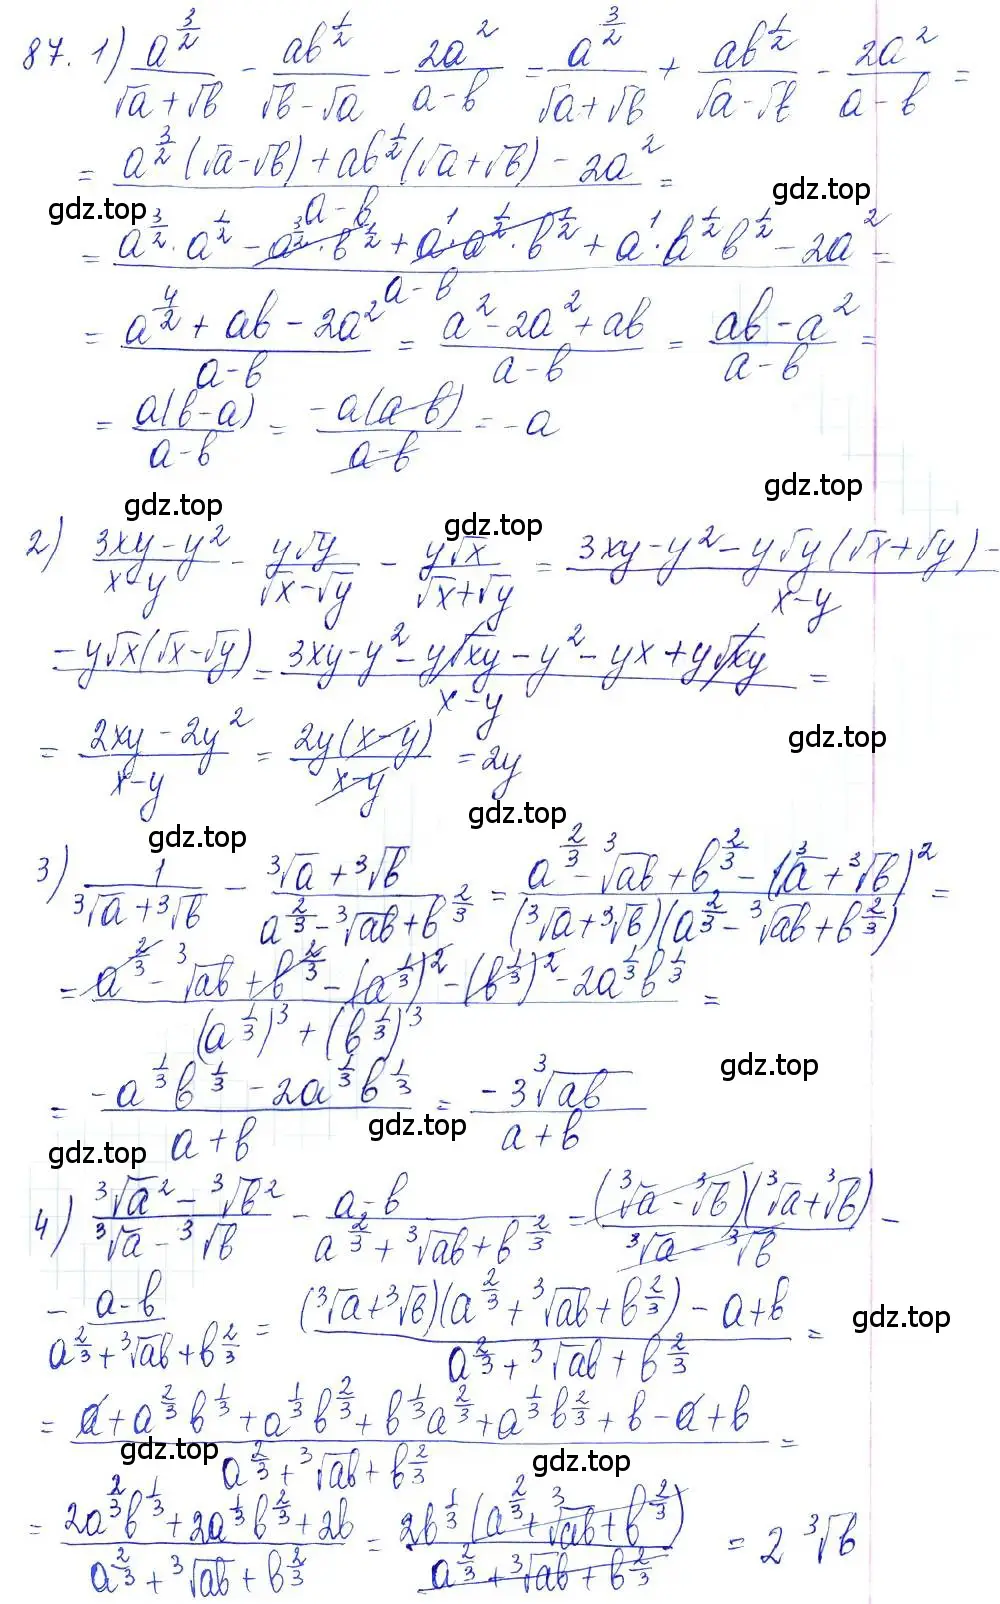 87. 1) a^(3/2)/(√a+√b) - ab^(1/2)/(√b-√a) - 2a^2/(a-b) = a^(3/2)/(√a+√b) + ab^(1/2)/(√a-√b) - 2a^2/(a-b) =
= (a^(3/2)(√a-√b) + ab^(1/2)(√a+√b) - 2a^2)/(a-b) =
gdz.top
gdz.top
= (a^(3/2)·a^(1/2) - a^(3/2)·b^(1/2) + a^1·a^(1/2)·b^(1/2) + a^1·b^(1/2)b^(1/2) - 2a^2)/(a-b) =
= (a^(4/2) + ab - 2a^2)/(a-b) = (a^2 - 2a^2 + ab)/(a-b) = (ab - a^2)/(a-b) =
= a(b-a)/(a-b) = -a(a-b)/(a-b) = -a
gdz.top
gdz.top
gdz.top
2) (3xy-y^2)/(x-y) - y√y/(√x-√y) - y√x/(√x+√y) = (3xy - y^2 - y√y(√x+√y) -
- y√x(√x-√y))/(x-y) = (3xy - y^2 - y√xy - y^2 - yx + y√xy)/(x-y) =
= (2xy - 2y^2)/(x-y) = 2y(x-y)/(x-y) = 2y
gdz.top
gdz.top
gdz.top
3) 1/(∛a+∛b) - (∛a+∛b)/(a^(2/3)-∛ab+b^(2/3)) = (a^(2/3) - ∛ab + b^(2/3) - (∛a+∛b)^2)/((∛a+∛b)(a^(2/3)-∛ab+b^(2/3))) =
= (a^(2/3) - ∛ab + b^(2/3) - (a^(1/3))^2 - (b^(1/3))^2 - 2a^(1/3)b^(1/3))/((a^(1/3))^3 + (b^(1/3))^3) =
= (-a^(1/3)b^(1/3) - 2a^(1/3)b^(1/3))/(a+b) = -3∛ab/(a+b)
gdz.top
gdz.top
gdz.top
4) (∛a^2 - ∛b^2)/(∛a-∛b) - (a-b)/(a^(2/3)+∛ab+b^(2/3)) = (∛a-∛b)(∛a+∛b)/(∛a-∛b) -
- (a-b)/(a^(2/3)+∛ab+b^(2/3)) = ((∛a+∛b)(a^(2/3)+∛ab+b^(2/3)) - a + b)/(a^(2/3)+∛ab+b^(2/3)) =
gdz.top
= (a + a^(2/3)b^(1/3) + a^(1/3)b^(2/3) + b^(1/3)a^(2/3) + a^(1/3)b^(2/3) + b - a + b)/(a^(2/3)+∛ab+b^(2/3)) =
gdz.top
gdz.top
= (2a^(2/3)b^(1/3) + 2a^(1/3)b^(2/3) + 2b)/(a^(2/3)+∛ab+b^(2/3)) = 2b^(1/3)(a^(2/3)+∛ab+b^(2/3))/(a^(2/3)+∛ab+b^(2/3)) = 2∛b